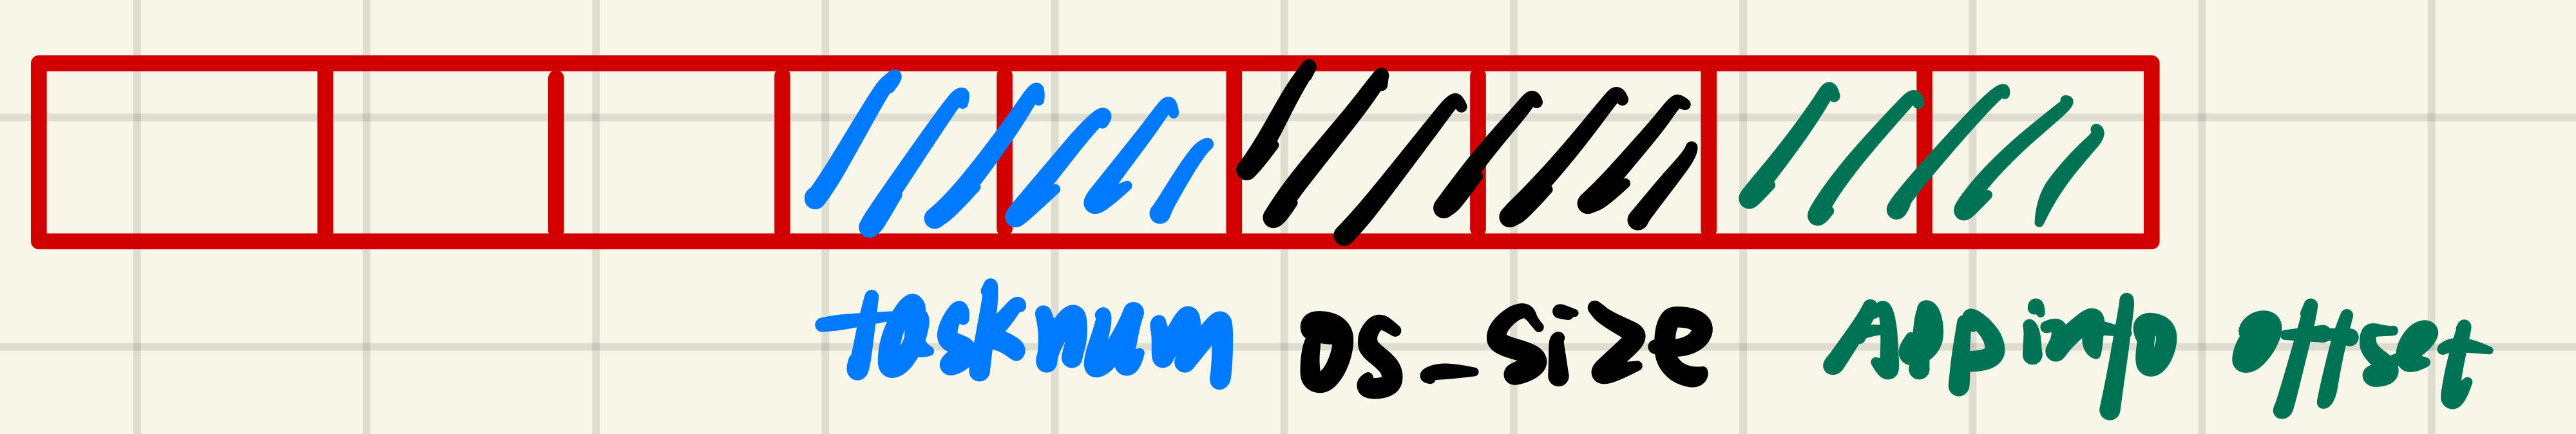 tasknum os_size Appinfo offset